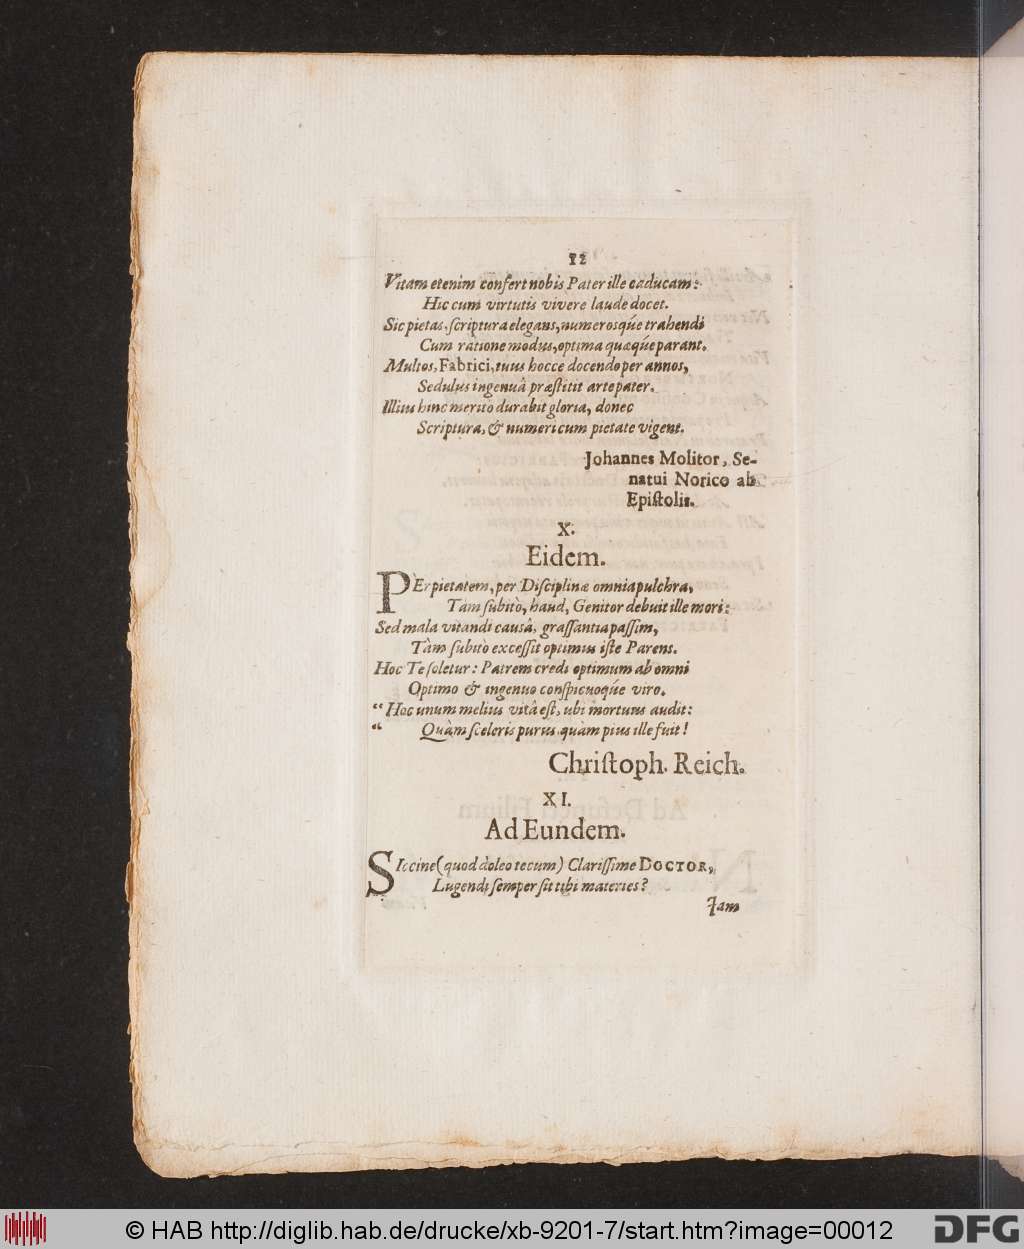 12
Vitam etenim confert nobis Pater ille caducam:
Hic cum virtutis vivere laude docet.
Sic pietas, scriptura elegans, numerosq́ue trahendi
Cum ratione modus, optima quæq́ue parant.
Multos, Fabrici, tuus hocce docendo per annos,
Sedulus ingenuâ præstitit arte pater.
Illius hinc meritò durabit gloria, donec
Scriptura, & numeri cum pietate vigent.
Johannes Molitor, Se-
natui Norico ab
Epistolis.
X.
Eidem.
PEr pietatem, per Disciplinæ omnia pulchra,
Tàm subitò, haud, Genitor debuit ille mori:
Sed mala vitandi causâ, grassantia passim,
Tàm subitò excessit optimus iste Parens.
Hoc Te soletur: Patrem credi optimum ab omni
Optimo & ingenuo conspicuoq́ue viro.
“ Hoc unum melius vitâ est, ubi mortuus audit:
“ Quàm sceleris purus, quàm pius ille fuit!
Christoph. Reich.
XI.
Ad Eundem.
SIccine (quod doleo tecum) Clarissime DOCTOR,
Lugendi semper sit tibi materies?
Jam
© HAB http://diglib.hab.de/drucke/xb-9201-7/start.htm?image=00012
DFG